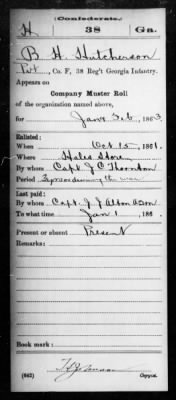 Confederate.
H 38 Ga.
B. H. Hutcherson
Pvt, Co. F, 38 Reg't Georgia Infantry.
Appears on
Company Muster Roll
of the organization named above,
for Jan & Feb, 1863
Enlisted:
When Oct 15, 1861.
Where Hales Store
By whom Capt J C Thornton
Period the war
Last paid:
By whom Capt. J J
To what time Jan 1, 186 .
Present or absent Present
Remarks:
Book mark:
(642) Copyist.